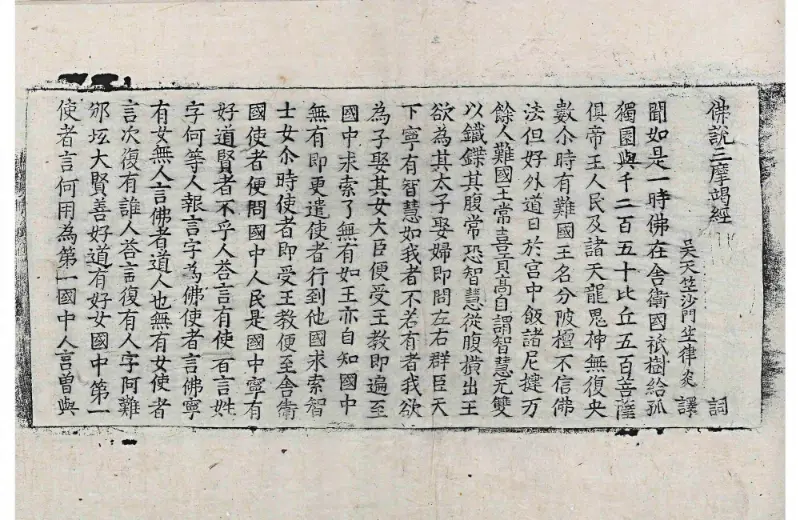 佛說三摩竭經 詞
吳天竺沙門竺律炎 譯
聞如是一時佛在舍衛國祇樹給孤
獨園與千二百五十比丘五百菩薩
俱帝王人民及諸天龍鬼神無復央
數尒時有難國王名分陂檀不信佛
法但好外道日於宮中飯諸尼揵万
餘人難國王常憙貢高自謂智慧无雙
以鐵鍱其腹常恐智慧從腹橫出王
欲為其太子娶婦即問左右群臣天
下寧有智慧如我者不若有者我欲
為子娶其女大臣便受王教即遍至
國中求索了無有如王亦自知國中
無有即更遣使者行到他國求索智
士女尒時使者即受王教便至舍衛
國使者便問國中人民是國中寧有
好道賢者不乎人荅言有使者言姓
字何等人報言字為佛使者言佛寧
有女無人言佛者道人也無有女使者
言次復有誰人荅言復有人字阿難
邠坻大賢善好道有好女國中第一
使者言何用為第一國中人言曾與